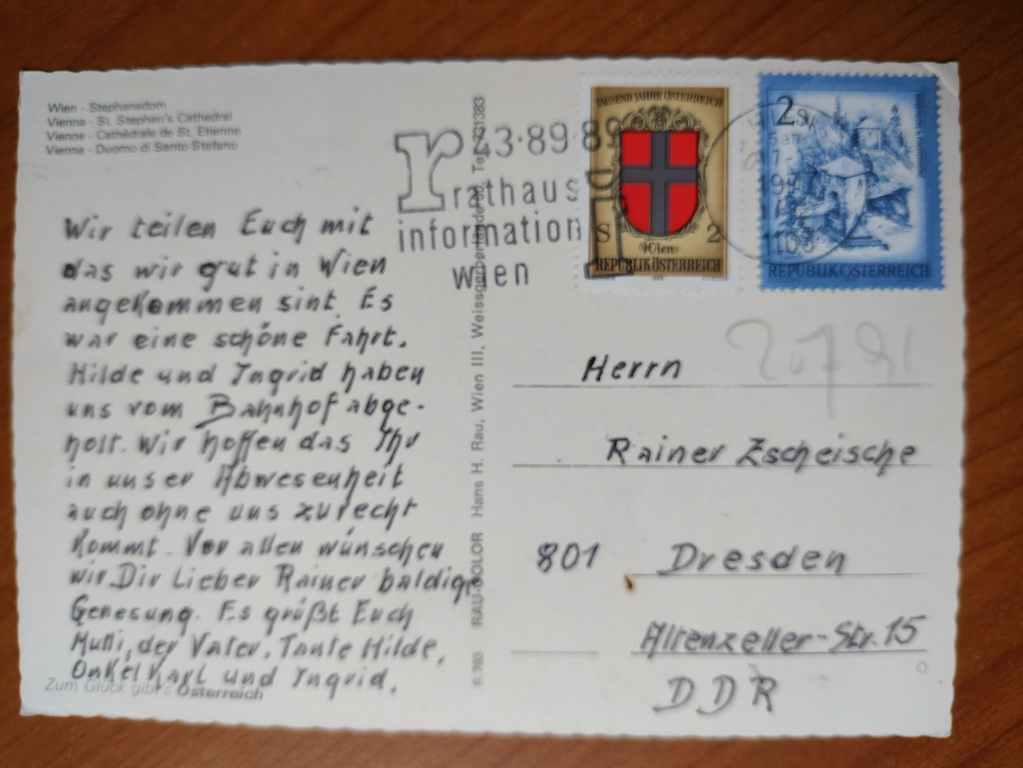 Wien - Stephansdom
Vienna - St. Stephen's Cathedral
Vienne - Cathédrale de St. Etienne
Vienna - Duomo di Santo Stefano
Wir teilen Euch mit
das wir gut in Wien
angekommen sint. Es
war eine schöne Fahrt.
Hilde und Ingrid haben
uns vom Bahnhof abge-
holt. Wir hoffen das Ihr
in unser Abwesenheit
auch ohne uns zurecht
kommt. Vor allen wünschen
wir Dir Lieber Rainer baldige
Genesung. Es grüßt Euch
Mutti, der Vater, Tante Hilde,
Onkel Karl und Ingrid.
Zum Glück gibt's Österreich
RAU-COLOR Hans H. Rau, Wien III, Weissgerberlände
43·89·89
rathaus
information
wien
TAUSEND JAHRE ÖSTERREICH
S 2
Wien
REPUBLIK ÖSTERREICH
2s
REPUBLIK ÖSTERREICH
1103
20791
Herrn
Rainer Zscheische
801 Dresden
Altenzeller-Str. 15
DDR